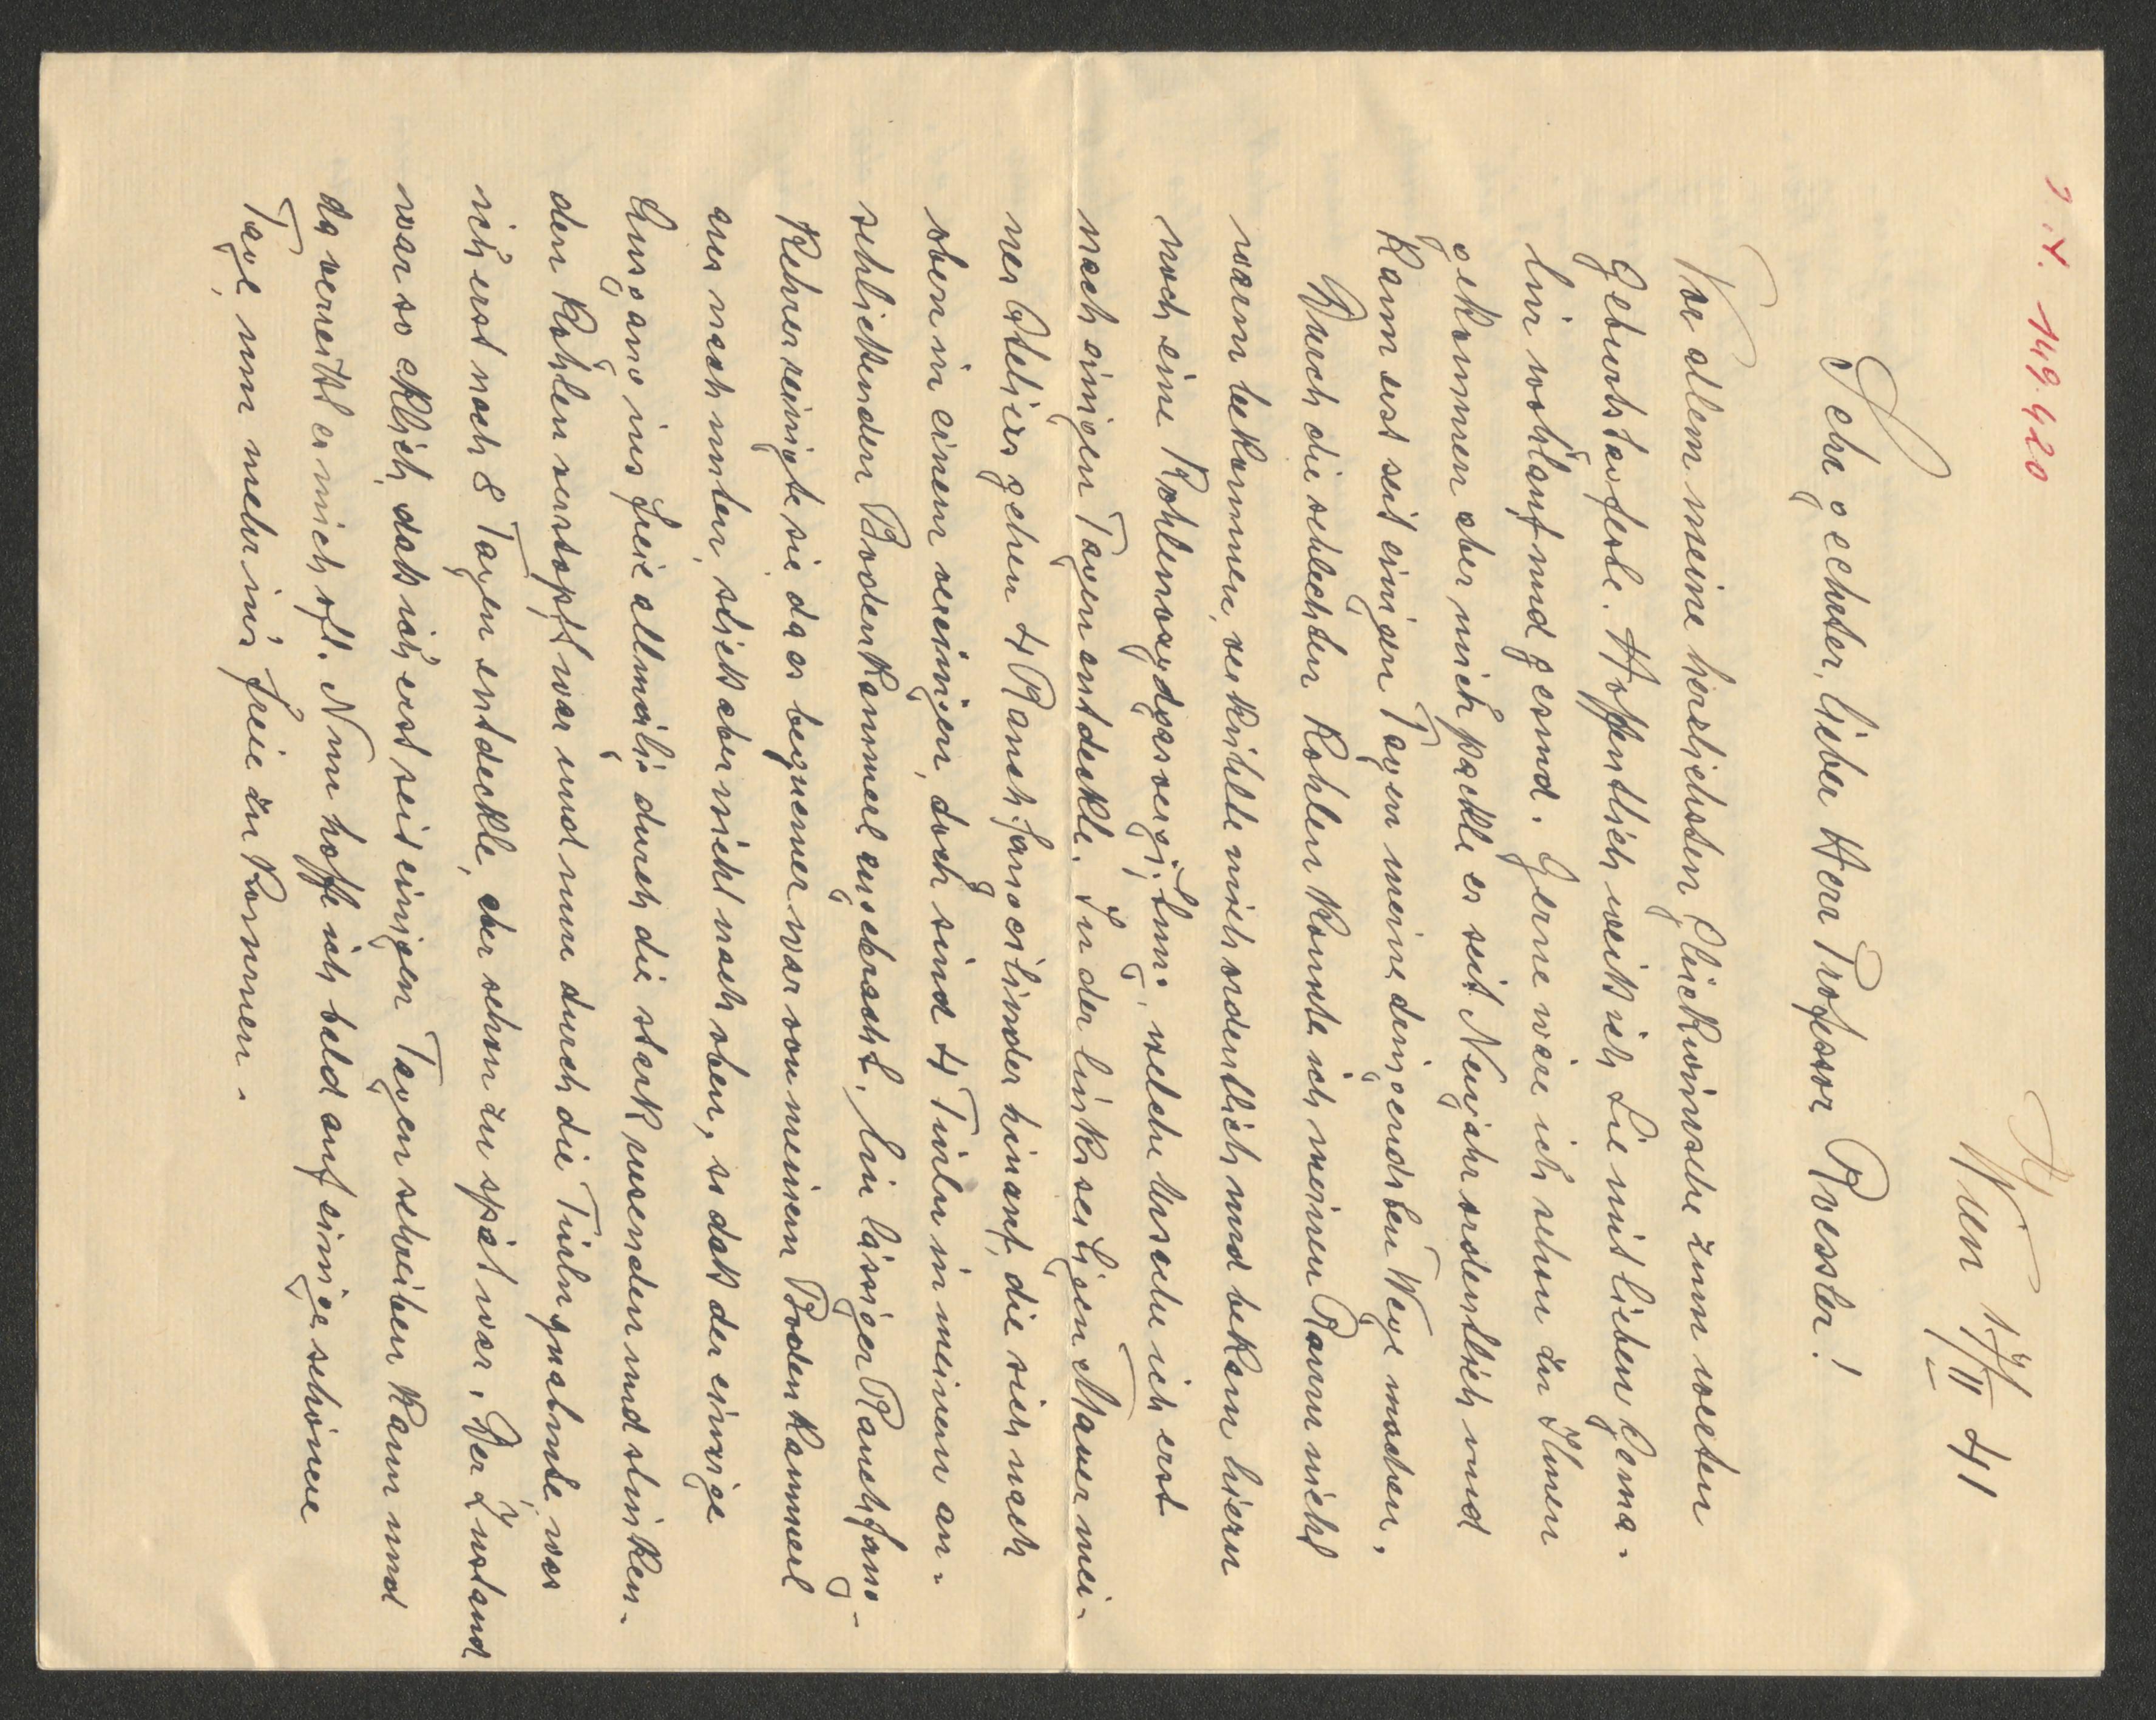 I.N. 149.420
Wien 17/II 41
Sehr geehrter, lieber Herr Professor Roessler!
Vor allem meine herzlichsten Glückwünsche zum werten
Geburtstagfeste. Hoffentlich weiß ich Sie mit lieben Gema-
lin wohlauf und gesund. Gerne wäre ich schon zu Ihnen
gekommen aber mich packte es seit Neujahr ordentlich und
kann erst seit einigen Tagen meine dringendsten Wege machen.
Durch die schlechten Kohlen konnte ich meinen Raum nicht
warm bekommen, verkühlte mich ordentlich und bekam hiezu
noch eine Kohlenoxydgasvergiftung, welche Ursache ich erst
nach einigen Tagen entdeckte. In der linksseitigen Mauer mei-
nes Ateliers gehen 4 Rauchfangcilinder hinauf, die sich nach
oben in einem vereinigen, doch sind 4 Türln in meinem an-
schließenden Bodenkammerl angebracht. Ein lässiger Rauchfang-
kehrer reinigte sie da es bequemer war von meinem Bodenkammerl
aus nach unten, stieß aber nicht nach oben, so daß der einzige
Ausgang ins Freie allmälig durch die stark rusenden und stinken-
den Kohlen verstopft war und nun durch die Türln qualmte, was
ich erst nach 8 Tagen entdeckte, aber schon zu spät war. Der Zustand
war so eklich, daß ich erst seit einigen Tagen schreiben kann und
da verreißt es mich oft. Nun hoffe ich bald auf einige schönere
Tage, um mehr in's Freie zu kommen.